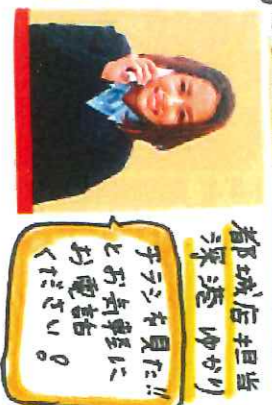 都城店担当
深港ゆかり
チラシを見た!!
とお気軽に
お電話
ください!